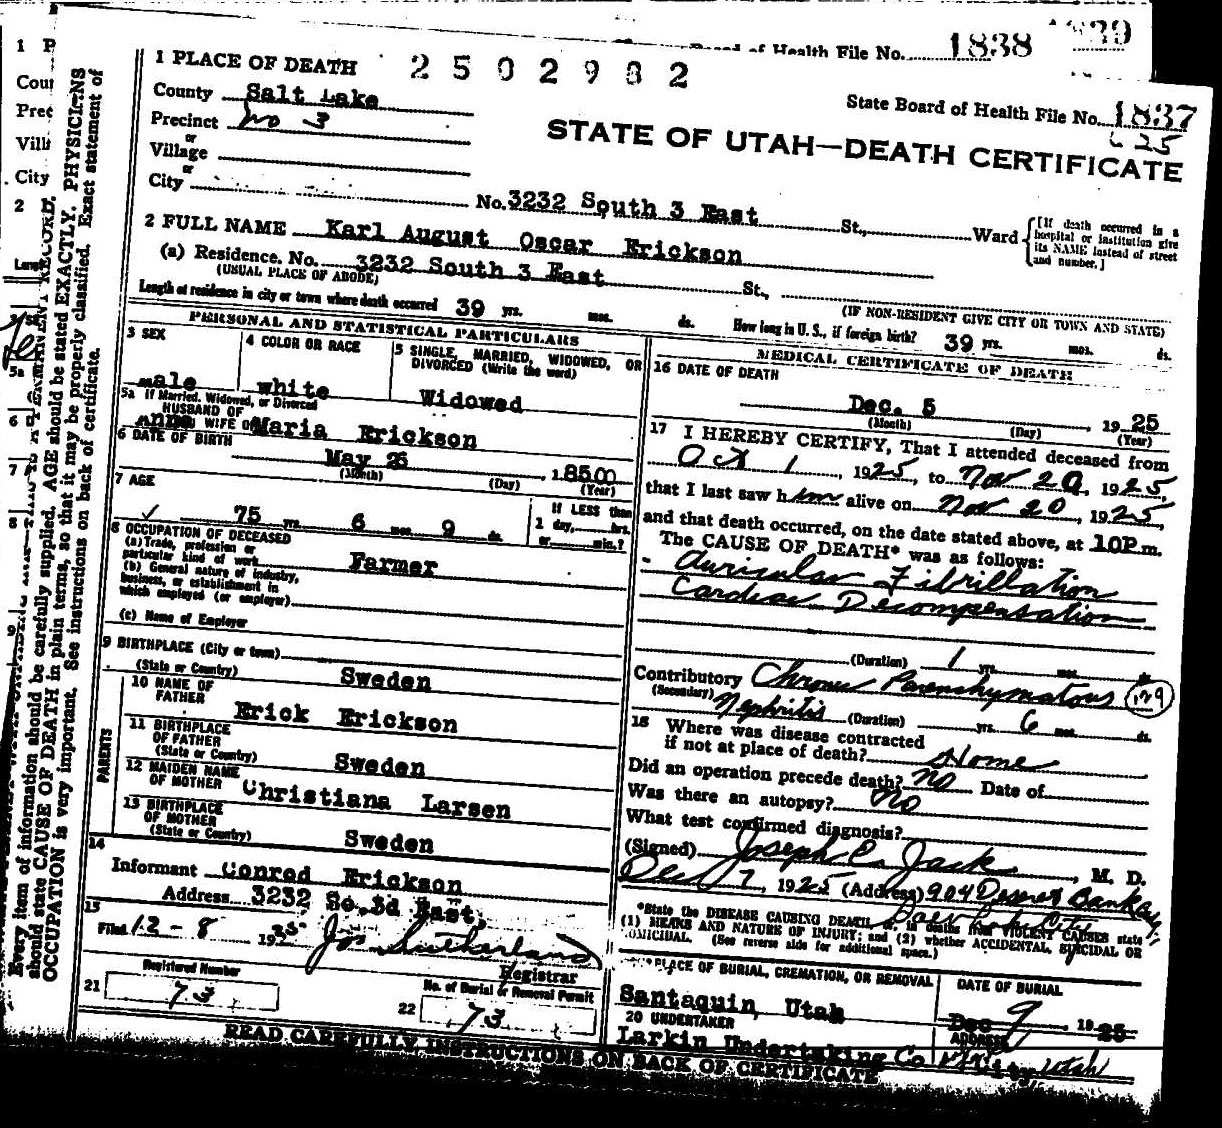 1838
Board of Health File No.
1 PLACE OF DEATH 2502982
State Board of Health File No. 1837
County Salt Lake
25
Precinct No 3
or
STATE OF UTAH—DEATH CERTIFICATE
Village
or
City
No. 3232 South 3 East St., Ward
[If death occurred in a hospital or institution give its NAME instead of street and number.]
2 FULL NAME Karl August Oscar Erickson
(a) Residence. No. 3232 South 3 East St.,
(USUAL PLACE OF ABODE)
(IF NON-RESIDENT GIVE CITY OR TOWN AND STATE)
Length of residence in city or town where death occurred 39 yrs. mos. ds. How long in U. S., if foreign birth? 39 yrs. mos. ds.
PERSONAL AND STATISTICAL PARTICULARS
3 SEX
male
4 COLOR OR RACE
white
5 SINGLE, MARRIED, WIDOWED, OR DIVORCED (Write the word)
Widowed
5a If Married, Widowed, or Divorced
HUSBAND OF
(or) WIFE OF Anna Maria Erickson
6 DATE OF BIRTH
May 26 1850
(Month) (Day) (Year)
7 AGE
75 yrs. 6 mos. 9 ds.
If LESS than
1 day, hrs.
or min.?
8 OCCUPATION OF DECEASED
(a) Trade, profession or
particular kind of work
Farmer
(b) General nature of industry,
business, or establishment in
which employed (or employer)
(c) Name of Employer
9 BIRTHPLACE (City or town)
(State or Country) Sweden
PARENTS
10 NAME OF
FATHER Erick Erickson
11 BIRTHPLACE
OF FATHER
(State or Country) Sweden
12 MAIDEN NAME
OF MOTHER Christiana Larsen
13 BIRTHPLACE
OF MOTHER
(State or Country) Sweden
14
Informant Conrod Erickson
Address 3232 So. 3d East,
15
Filed 12-8 1925 Jos Sutherland
Registrar
Registered Number
21 73
No. of Burial or Removal Permit
22 73
MEDICAL CERTIFICATE OF DEATH
16 DATE OF DEATH
Dec. 5 1925
(Month) (Day) (Year)
17 I HEREBY CERTIFY, That I attended deceased from
Oct 1, 1925, to Nov 20, 1925,
that I last saw him alive on Nov 20, 1925,
and that death occurred, on the date stated above, at 10P.m.
The CAUSE OF DEATH* was as follows:
Auricular Fibrillation
Cardiac Decompensation
(Duration) 1 yrs. mos. ds.
Contributory Chronic Parenchymatous 129
(Secondary) Nephritis (Duration) yrs. 6 mos. ds.
18 Where was disease contracted
if not at place of death? Home
Did an operation precede death? no Date of
Was there an autopsy? No
What test confirmed diagnosis?
(Signed) Joseph E. Jack, M. D.
Dec 7, 1925 (Address) 904 Deseret Bank
Salt Lake City
*State the DISEASE CAUSING DEATH, or, in deaths from VIOLENT CAUSES state
(1) MEANS AND NATURE OF INJURY; and (2) whether ACCIDENTAL, SUICIDAL OR
HOMICIDAL. (See reverse side for additional space.)
PLACE OF BURIAL, CREMATION, OR REMOVAL
Santaquin, Utah
DATE OF BURIAL
Dec 9 1925
20 UNDERTAKER
Larkin Undertaking Co
ADDRESS
City, Utah
READ CAREFULLY INSTRUCTIONS ON BACK OF CERTIFICATE
Every item of information should be carefully supplied. AGE should be stated EXACTLY. PHYSICIANS
should state CAUSE OF DEATH in plain terms, so that it may be properly classified. Exact statement of
OCCUPATION is very important. See instructions on back of certificate.